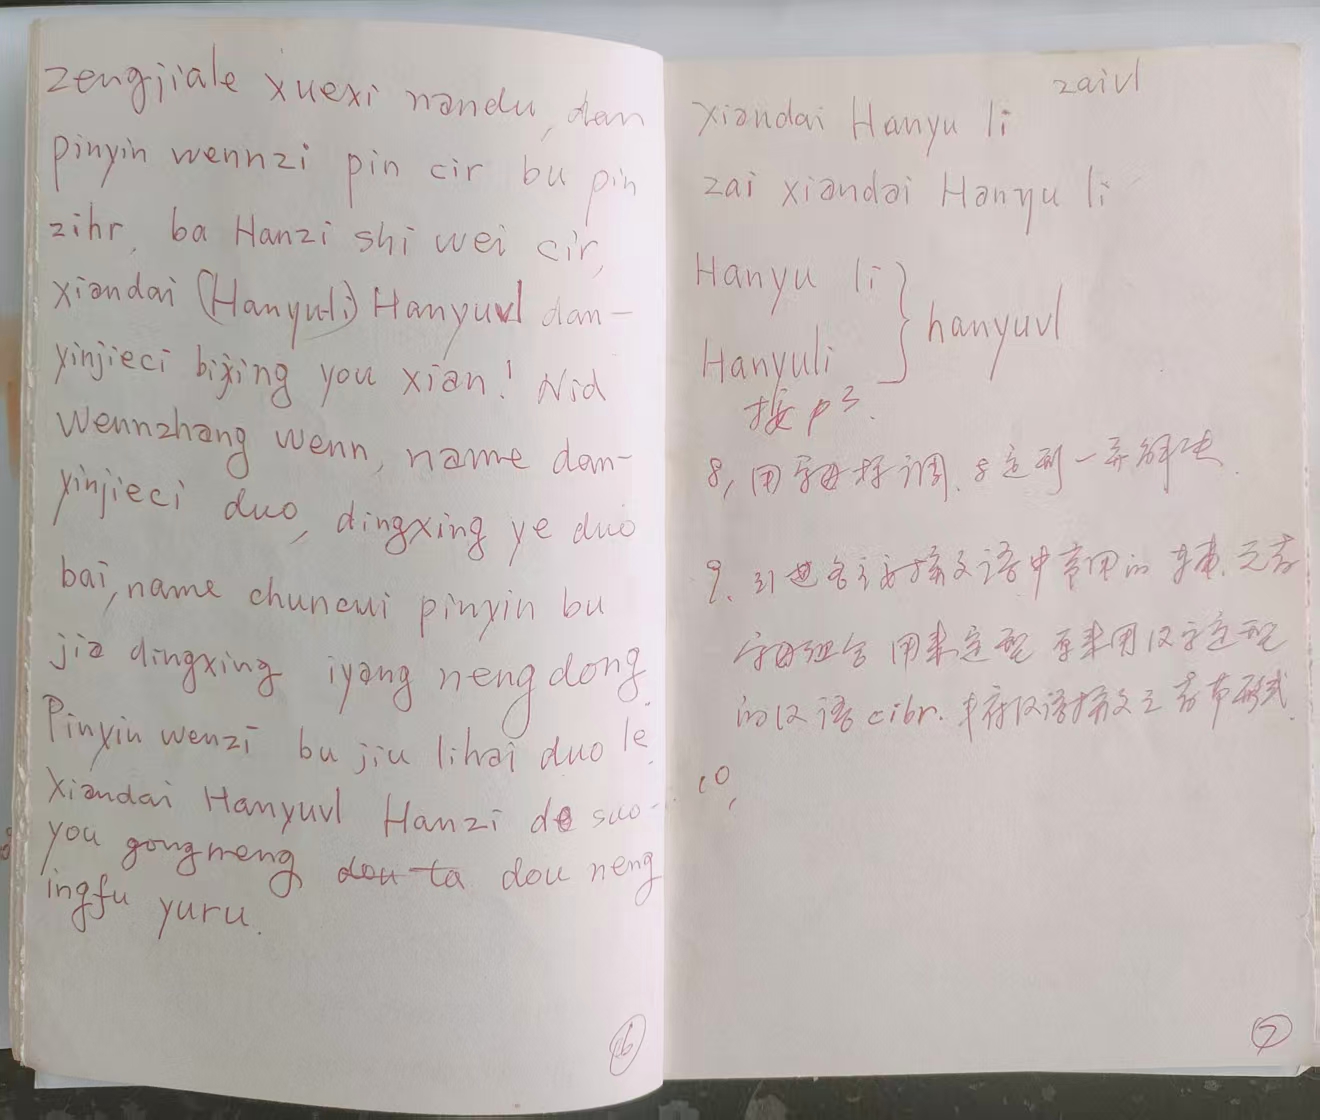 zengjiale xuexi nandu, dan
pinyin wennzi pin cir bu pin
zihr, ba Hanzi shi wei cir,
xiandai (Hanyuli) Hanyuvl dan-
yinjieci bijing you xian! Nid
wennzhang wenn, name dan-
yinjieci duo, dingxing ye duo
bai, name chuncui pinyin bu
jia dingxing iyang neng dong.
Pinyin wenzi bu jiu lihai duo le.
Xiandai Hanyuvl Hanzi de suo-
you gongneng dou ta dou neng
ingfu yuru.
6
zaivl
xiandai Hanyu li
zai xiandai Hanyu li
Hanyu li
Hanyuli
hanyuvl
接 p 3.
8, 用字母标调. 定型一
9. 引进 拼文语中常用的 元音
字母组合 用来定型 原来用汉字定型
的汉语 cibr. 汉语拼文 形式.
10,
7